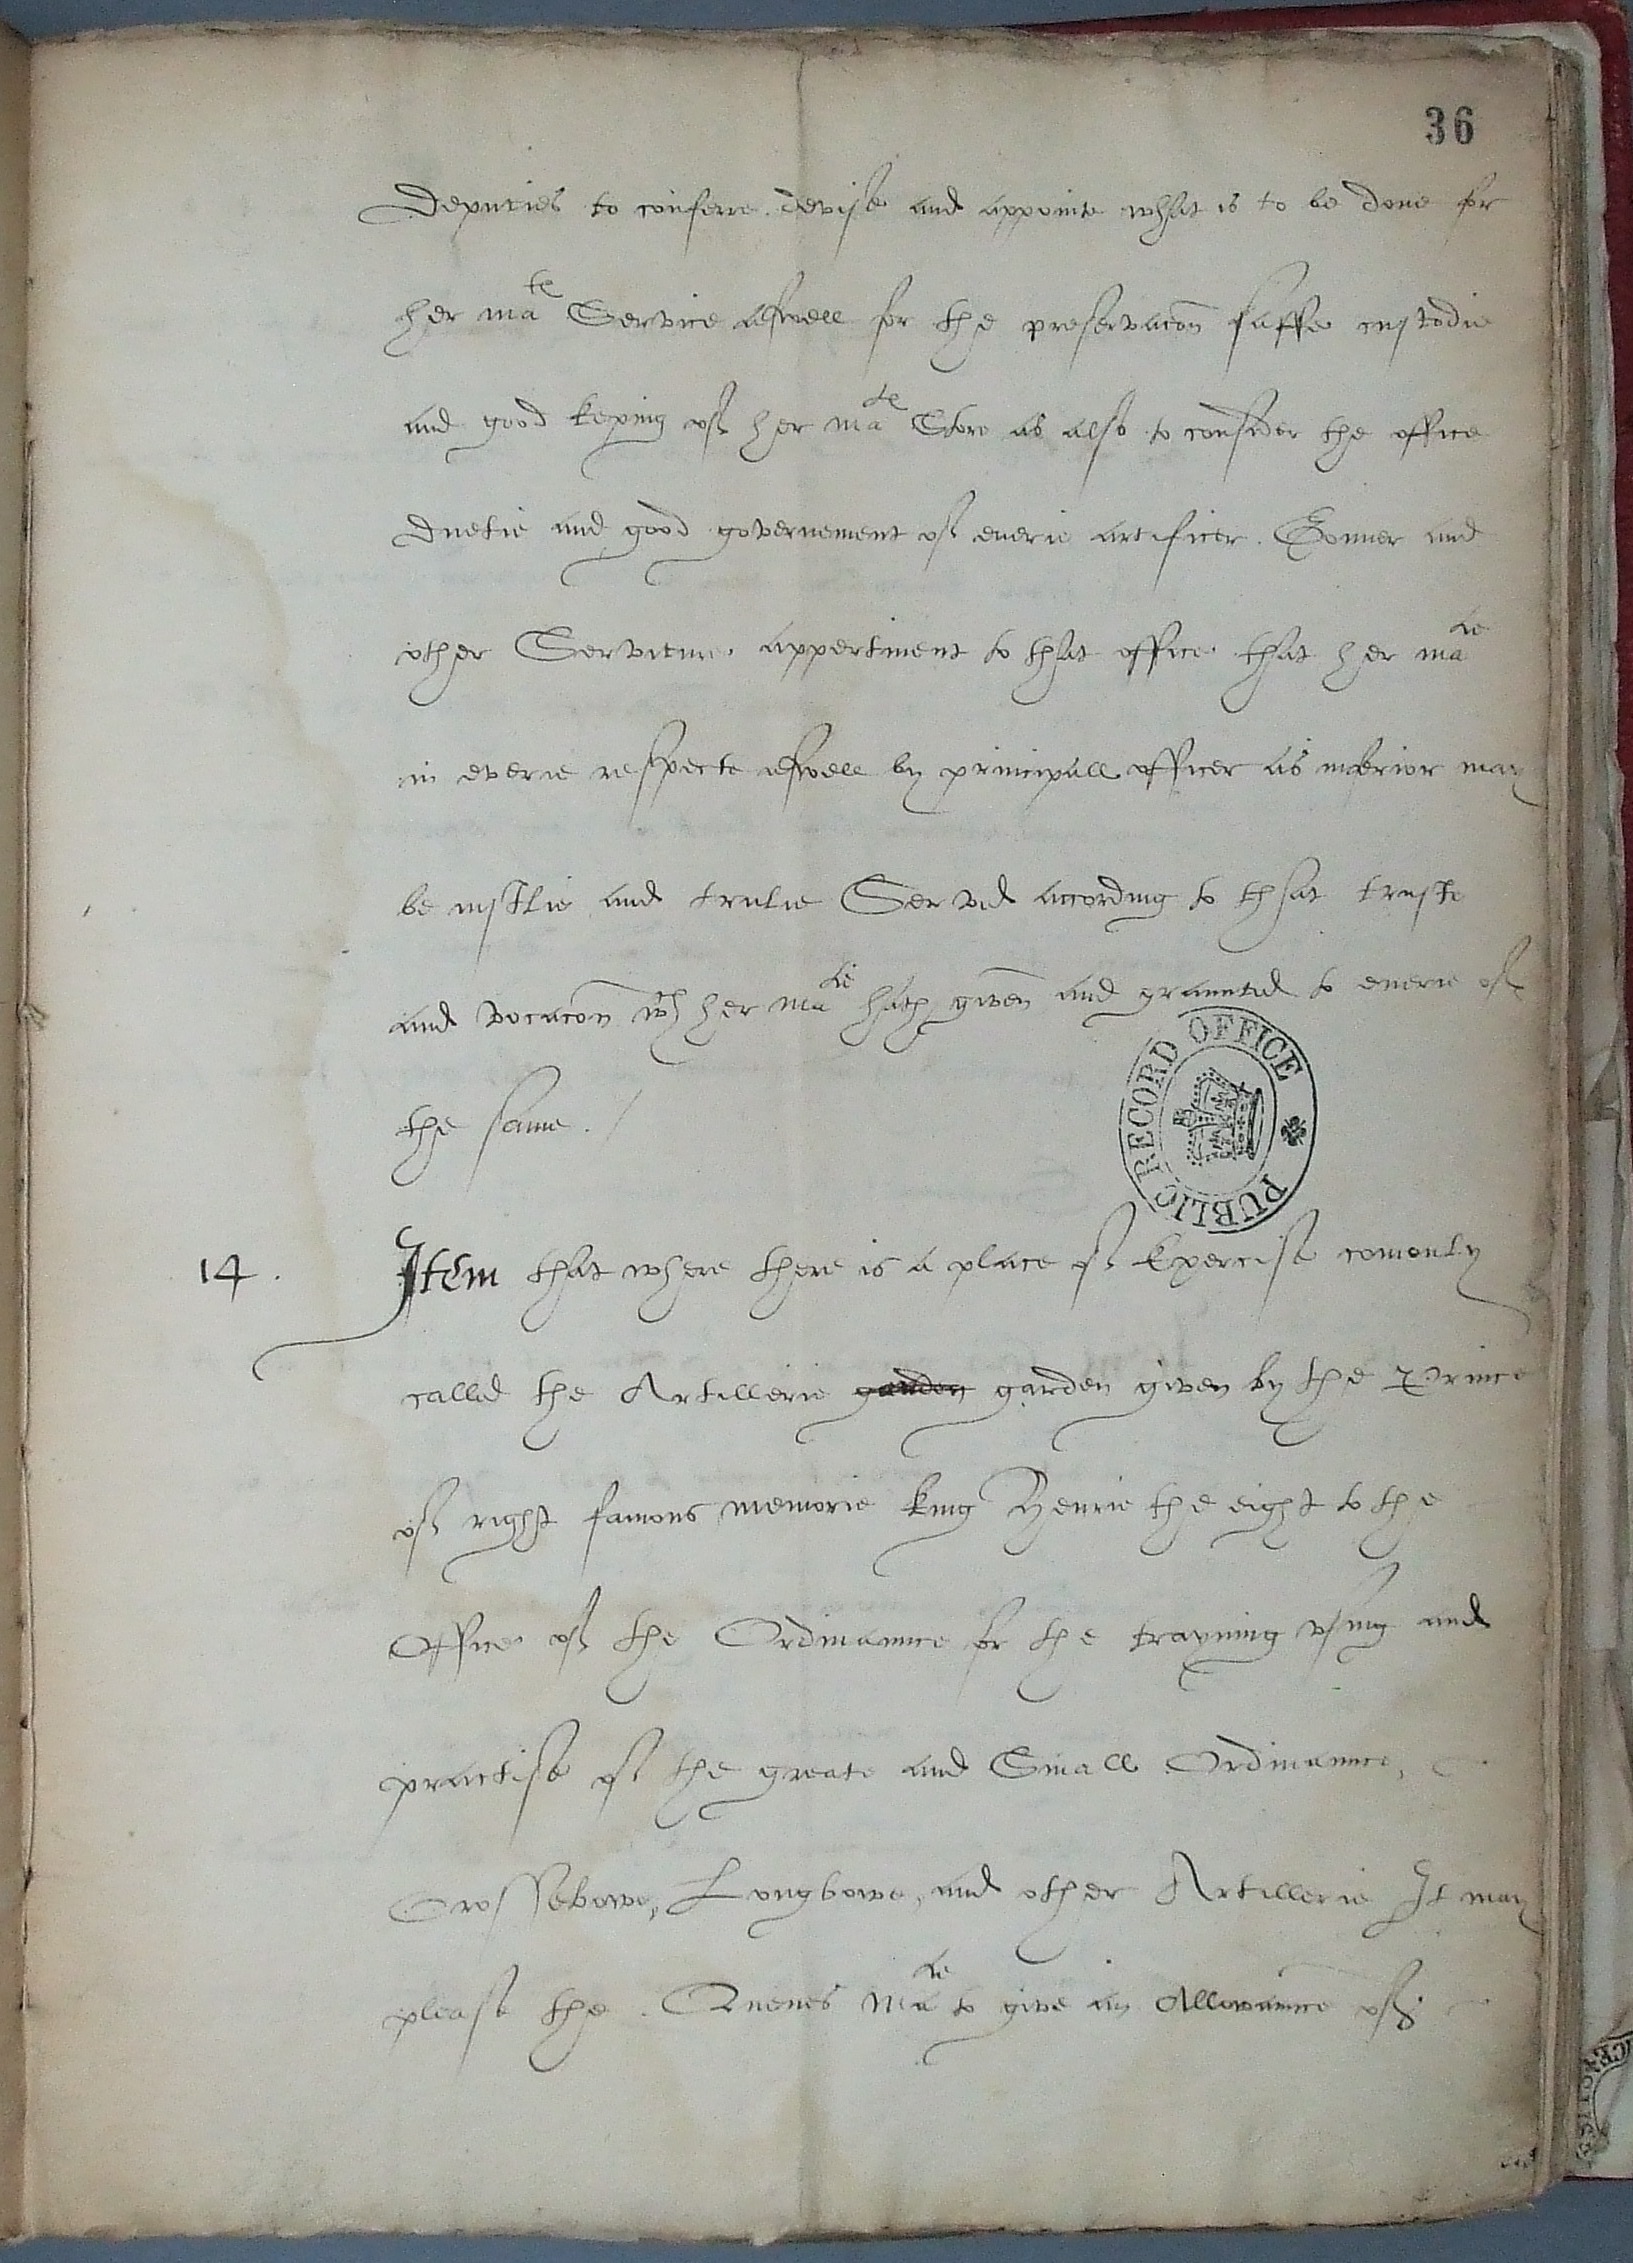 36
Deputies to conferre devise and appointe what is to be done for
her ma^te Service aswell for the preservacon saffe custodie
and good keping of her ma^te Store as also to consider the office
duetie and good governement of euerie artificer. Gonner and
other Serviture appertinent to that office that her ma^tie
in everie respecte aswell by principall officer as inferior may
be iustlie and trulie Served according to that truste
and vocacon w^ch her ma^tie hath given and graunted to euerie of
the same. /
14. Item that where there is a place of Exercise comonly
called the Artillerie garden garden given by the Prince
of right famous memorie king Henrie the eight to the
Office of the Ordinaunce for the trayning vsing and
practise of the greate and Small Ordinaunce,
Crossebowe, Longbowe, and other Artillerie It may
please the Quenes Ma^tie to give an Allowaunce of
PUBLIC RECORD OFFICE